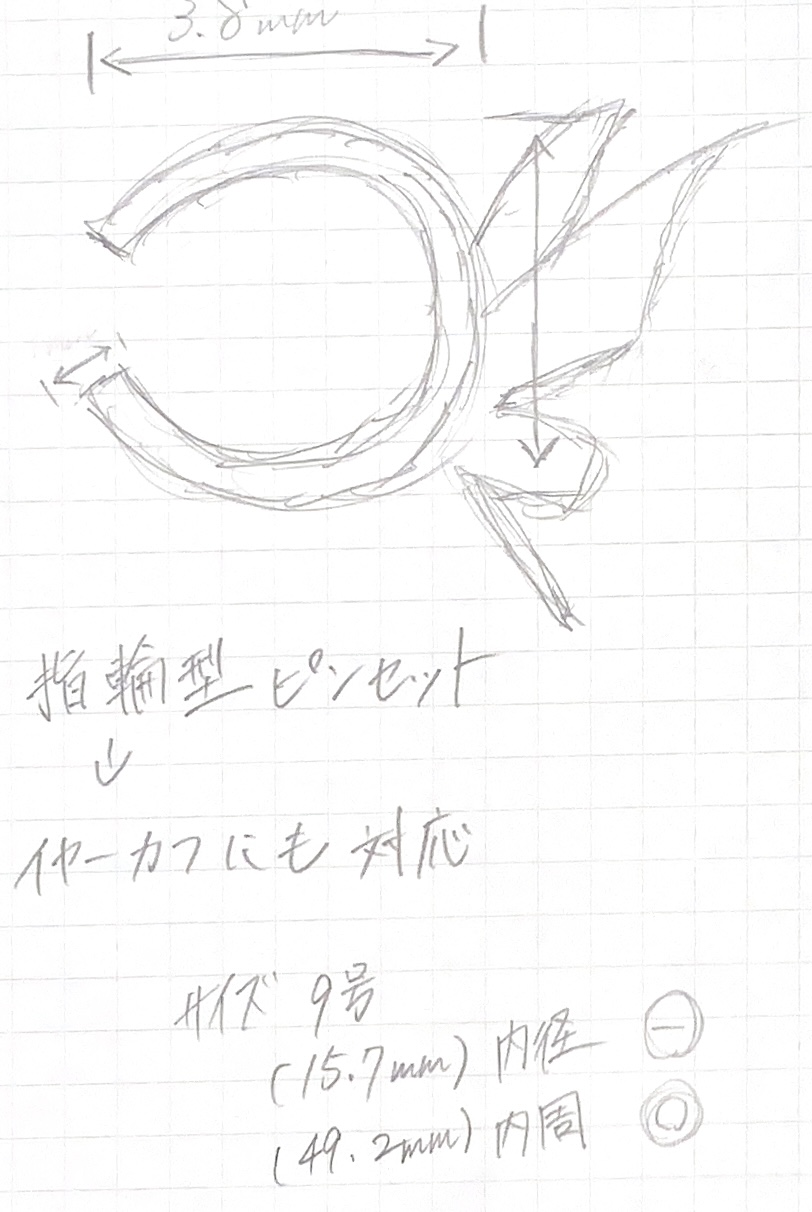 3.8mm
指輪型ピンセット
↓
イヤーカフにも対応
サイズ 9号
(15.7mm) 内径
(49.2mm) 内周